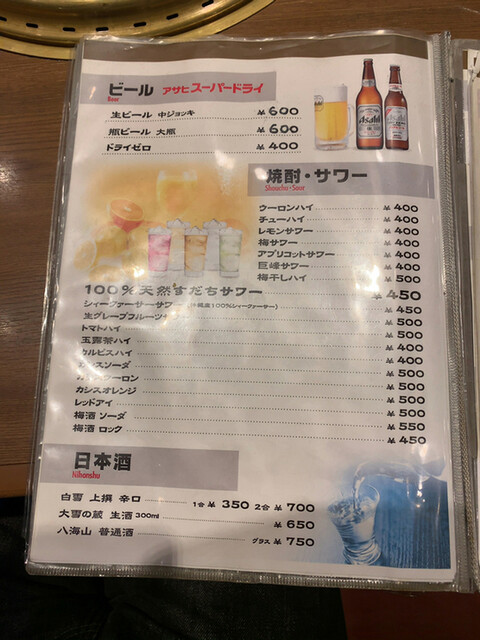 ビール アサヒスーパードライ
Beer
生ビール 中ジョッキ ¥600
瓶ビール 大瓶 ¥600
ドライゼロ ¥400
Asahi
Asahi
焼酎・サワー
Shouchu・Sour
ウーロンハイ ¥400
チューハイ ¥400
レモンサワー ¥400
梅サワー ¥400
アプリコットサワー ¥400
巨峰サワー ¥400
梅干しハイ ¥500
100%天然すだちサワー ¥450
シィークァーサーサワー 100%シィークァーサー) ¥450
生グレープフルーツサワー ¥500
トマトハイ ¥500
玉露茶ハイ ¥400
カルピスハイ ¥400
カシスソーダ ¥500
ーロン ¥500
カシスオレンジ ¥500
レッドアイ ¥500
梅酒 ソーダ ¥550
梅酒 ロック ¥450
日本酒
Nihonshu
白雪 上撰 辛口 1合 ¥350 2合 ¥700
大雪の蔵 生酒 300ml ¥650
八海山 普通酒 グラス ¥750